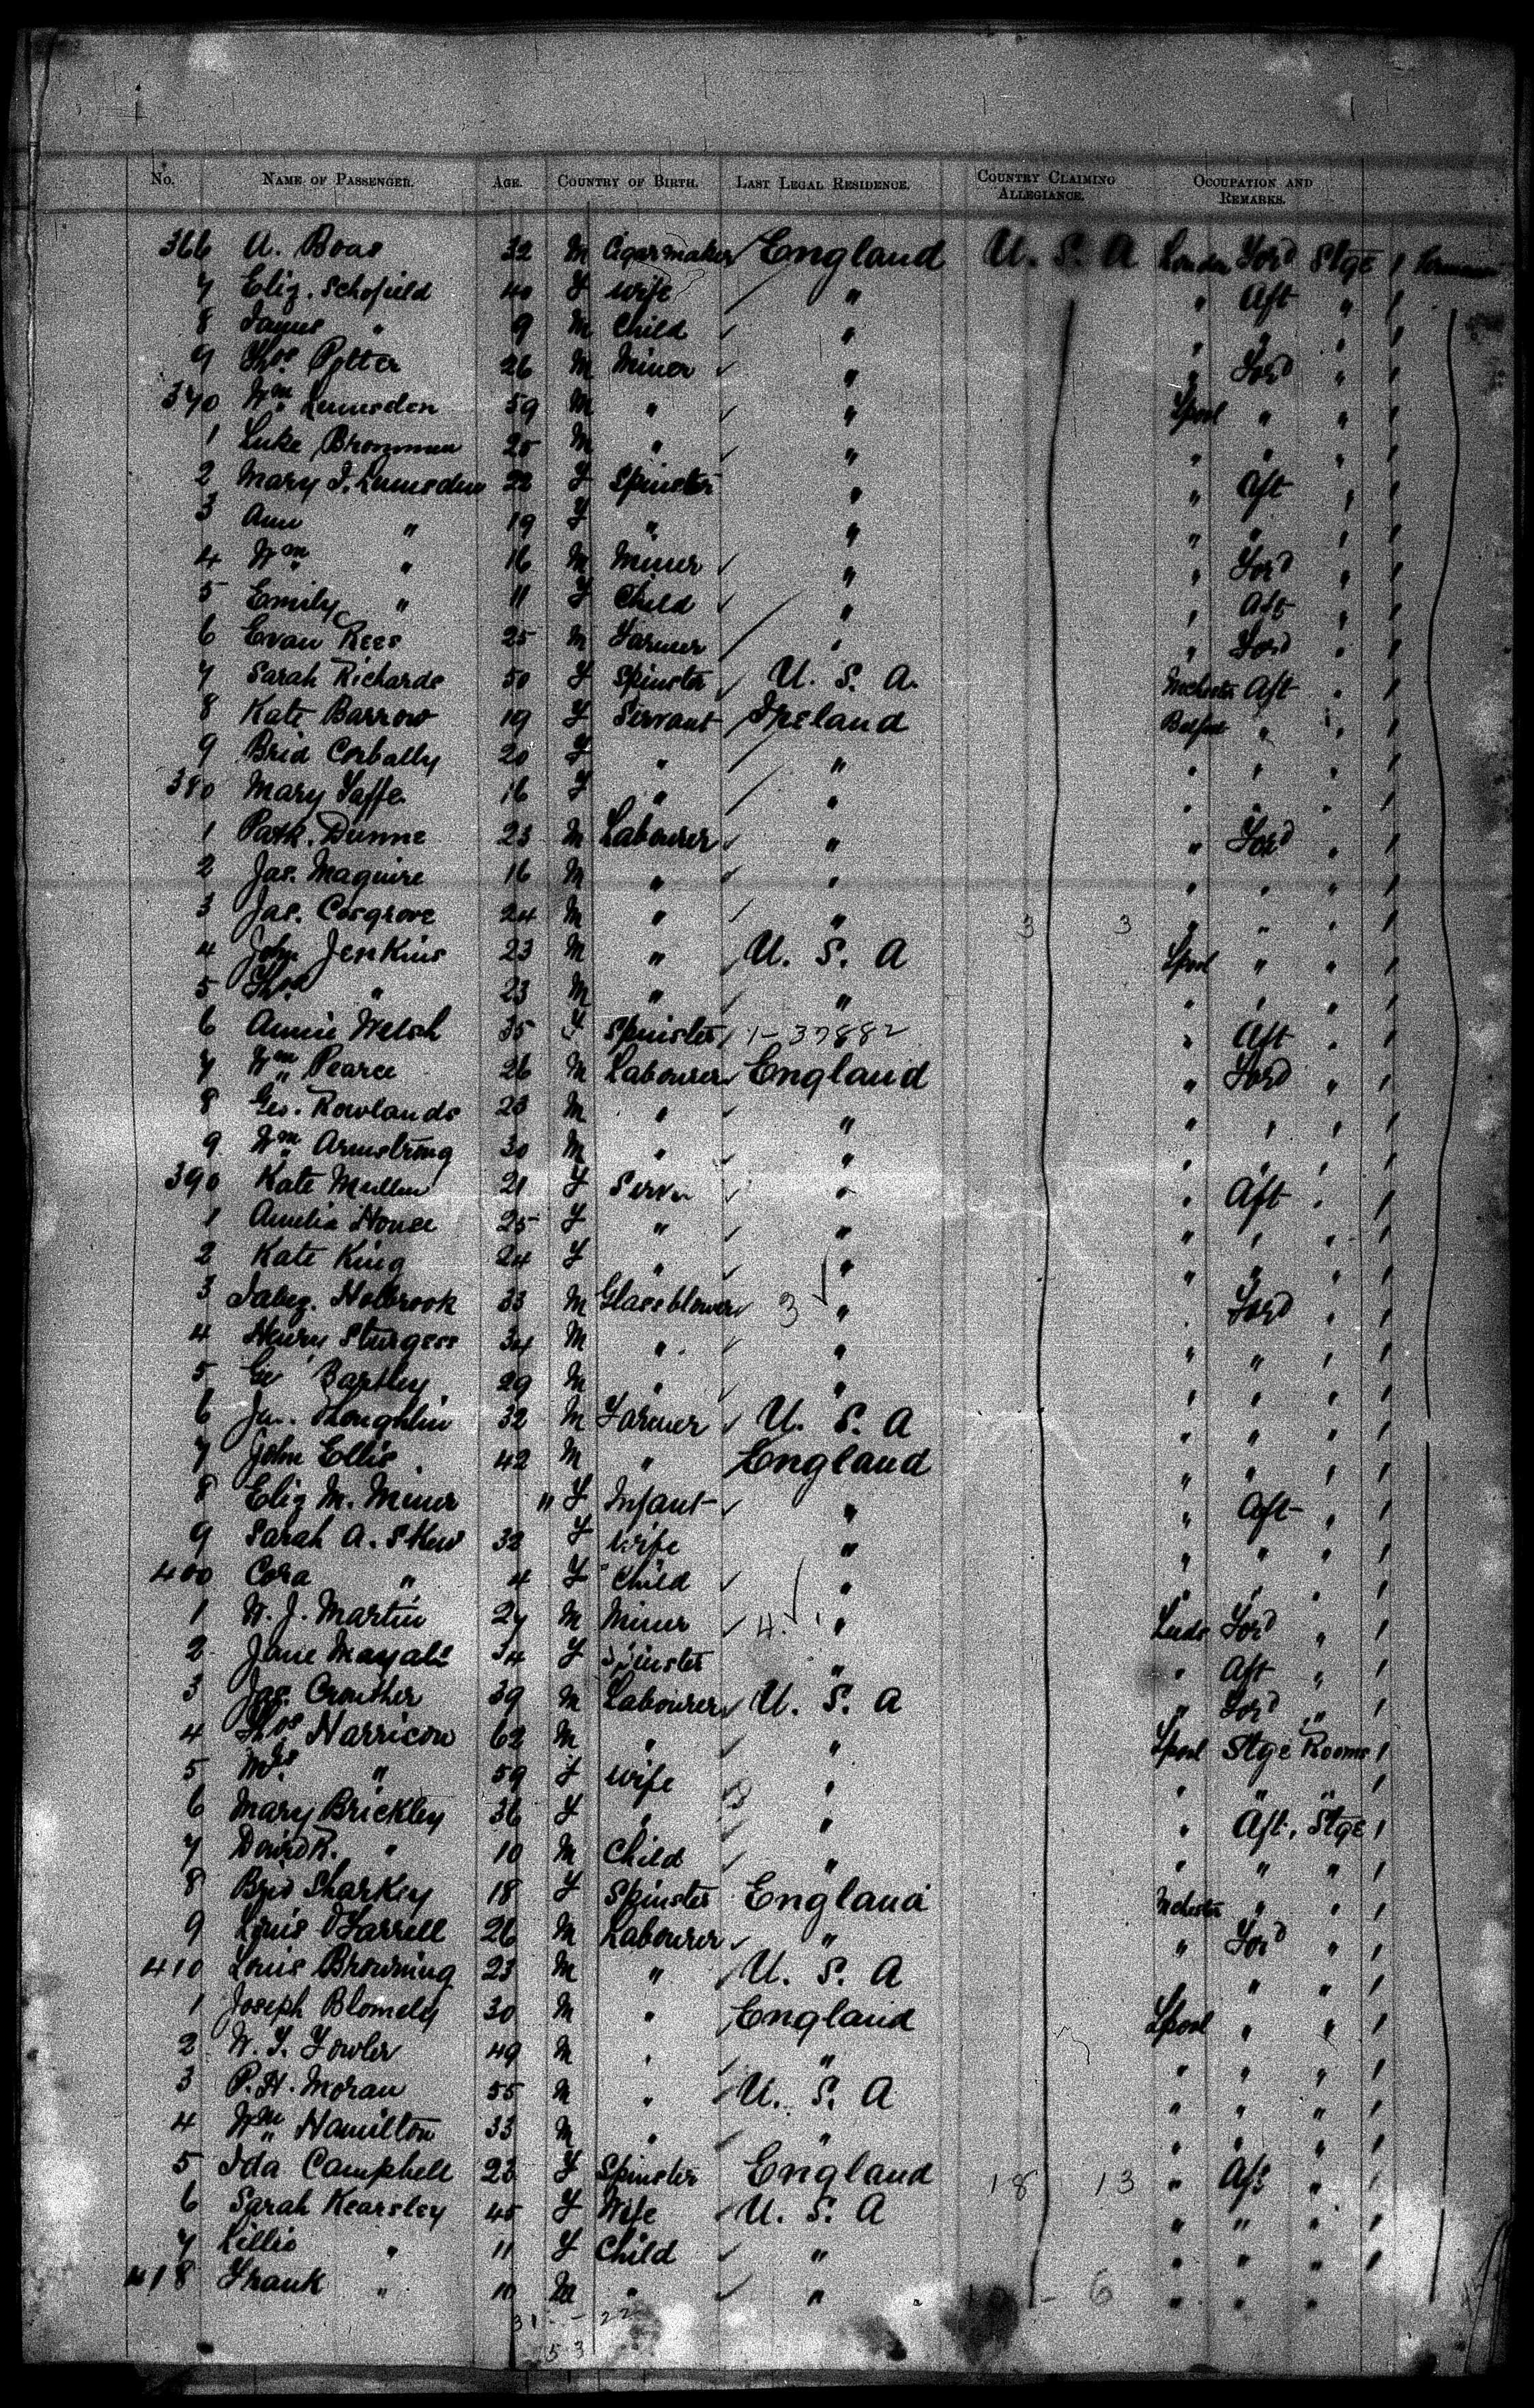 No. NAME OF PASSENGER. AGE. COUNTRY OF BIRTH. LAST LEGAL RESIDENCE. COUNTRY CLAIMING ALLEGIANCE. OCCUPATION AND REMARKS.
366 A. Boas 32 M Cigarmaker England U. S. A London For'd Stge 1
7 Eliz. Schofield 40 F Wife " " Aft " 1
8 James " 9 M Child " " " " 1
9 Thos. Potter 26 M Miner " " For'd " 1
370 Wm. Lumsden 59 M " " Lpool " " 1
1 Luke Bronnman 25 M " " " " " 1
2 Mary J. Lumsden 22 F Spinster " " Aft " 1
3 Ann " 19 F " " " " " 1
4 Wm. " 16 M Miner " " For'd " 1
5 Emily " 11 F Child " " Aft " 1
6 Evan Rees 25 M Farmer " " For'd " 1
7 Sarah Richards 50 F Spinster U. S. A. Mchester Aft " 1
8 Kate Barrow 19 F Servant Ireland Belfast " " 1
9 Brid Corbally 20 F " " " " " 1
380 Mary Taffe 16 F " " " " " 1
1 Patk. Dunne 23 M Labourer " " For'd " 1
2 Jas. Maguire 16 M " " " " " 1
3 Jas. Cosgrove 24 M " " 3 3 " " " 1
4 John Jenkins 23 M " U. S. A Lpool " " 1
5 Thos. " 23 M " " " " " 1
6 Annie Welsh 35 F Spinster 1-37882 " Aft " 1
7 Wm. Pearce 26 M Labourer England " For'd " 1
8 Geo. Rowlands 23 M " " " " " 1
9 Wm. Armstrong 30 M " " " " " 1
390 Kate Mullen 21 F Servn " " Aft " 1
1 Amelia House 25 F " " " " " 1
2 Kate King 24 F " " " " " 1
3 Jabez. Holbrook 33 M Glassblower 3 " " For'd " 1
4 Henry Sturgess 34 M " " " " " 1
5 Geo Bartley 29 M " " " " " 1
6 Loughlin 32 M Farmer U. S. A " " " 1
7 John Ellis 42 M " England " " " 1
8 Eliz M. Miner " F Infant " " Aft " 1
9 Sarah A. Skew 32 F Wife " " " " 1
400 Cora " 4 F Child " " " " 1
1 W. J. Martin 27 M Miner 4 " Leeds For'd " 1
2 Jane Mayall 34 F Spinster " " Aft " 1
3 Jas. Crowther 39 M Labourer U. S. A " For'd " 1
4 Thos Harrison 62 M " " Lpool Stge Rooms 1
5 Mrs. " 59 F Wife " " " " 1
6 Mary Brickley 36 F " " " Aft. Stge 1
7 David R. " 10 M Child " " " " 1
8 Brid Sharkey 18 F Spinster England Mchester " " 1
9 Louis O'Farrell 26 M Labourer " " For'd " 1
410 Louis Browning 23 M " U. S. A " " " 1
1 Joseph Blomely 30 M " England Lpool " " 1
2 W. T. Fowler 49 M " " " " " 1
3 P. H. Moran 55 M " U. S. A " " " 1
4 Wm. Hamilton 33 M " " " " " 1
5 Ida Campbell 23 F Spinster England 18 13 " Aft " 1
6 Sarah Kearsley 45 F Wife U. S. A " " " 1
7 Lillie " 11 F Child " " " " 1
418 Frank " 10 M " " 6 " " "
31 - 22
53